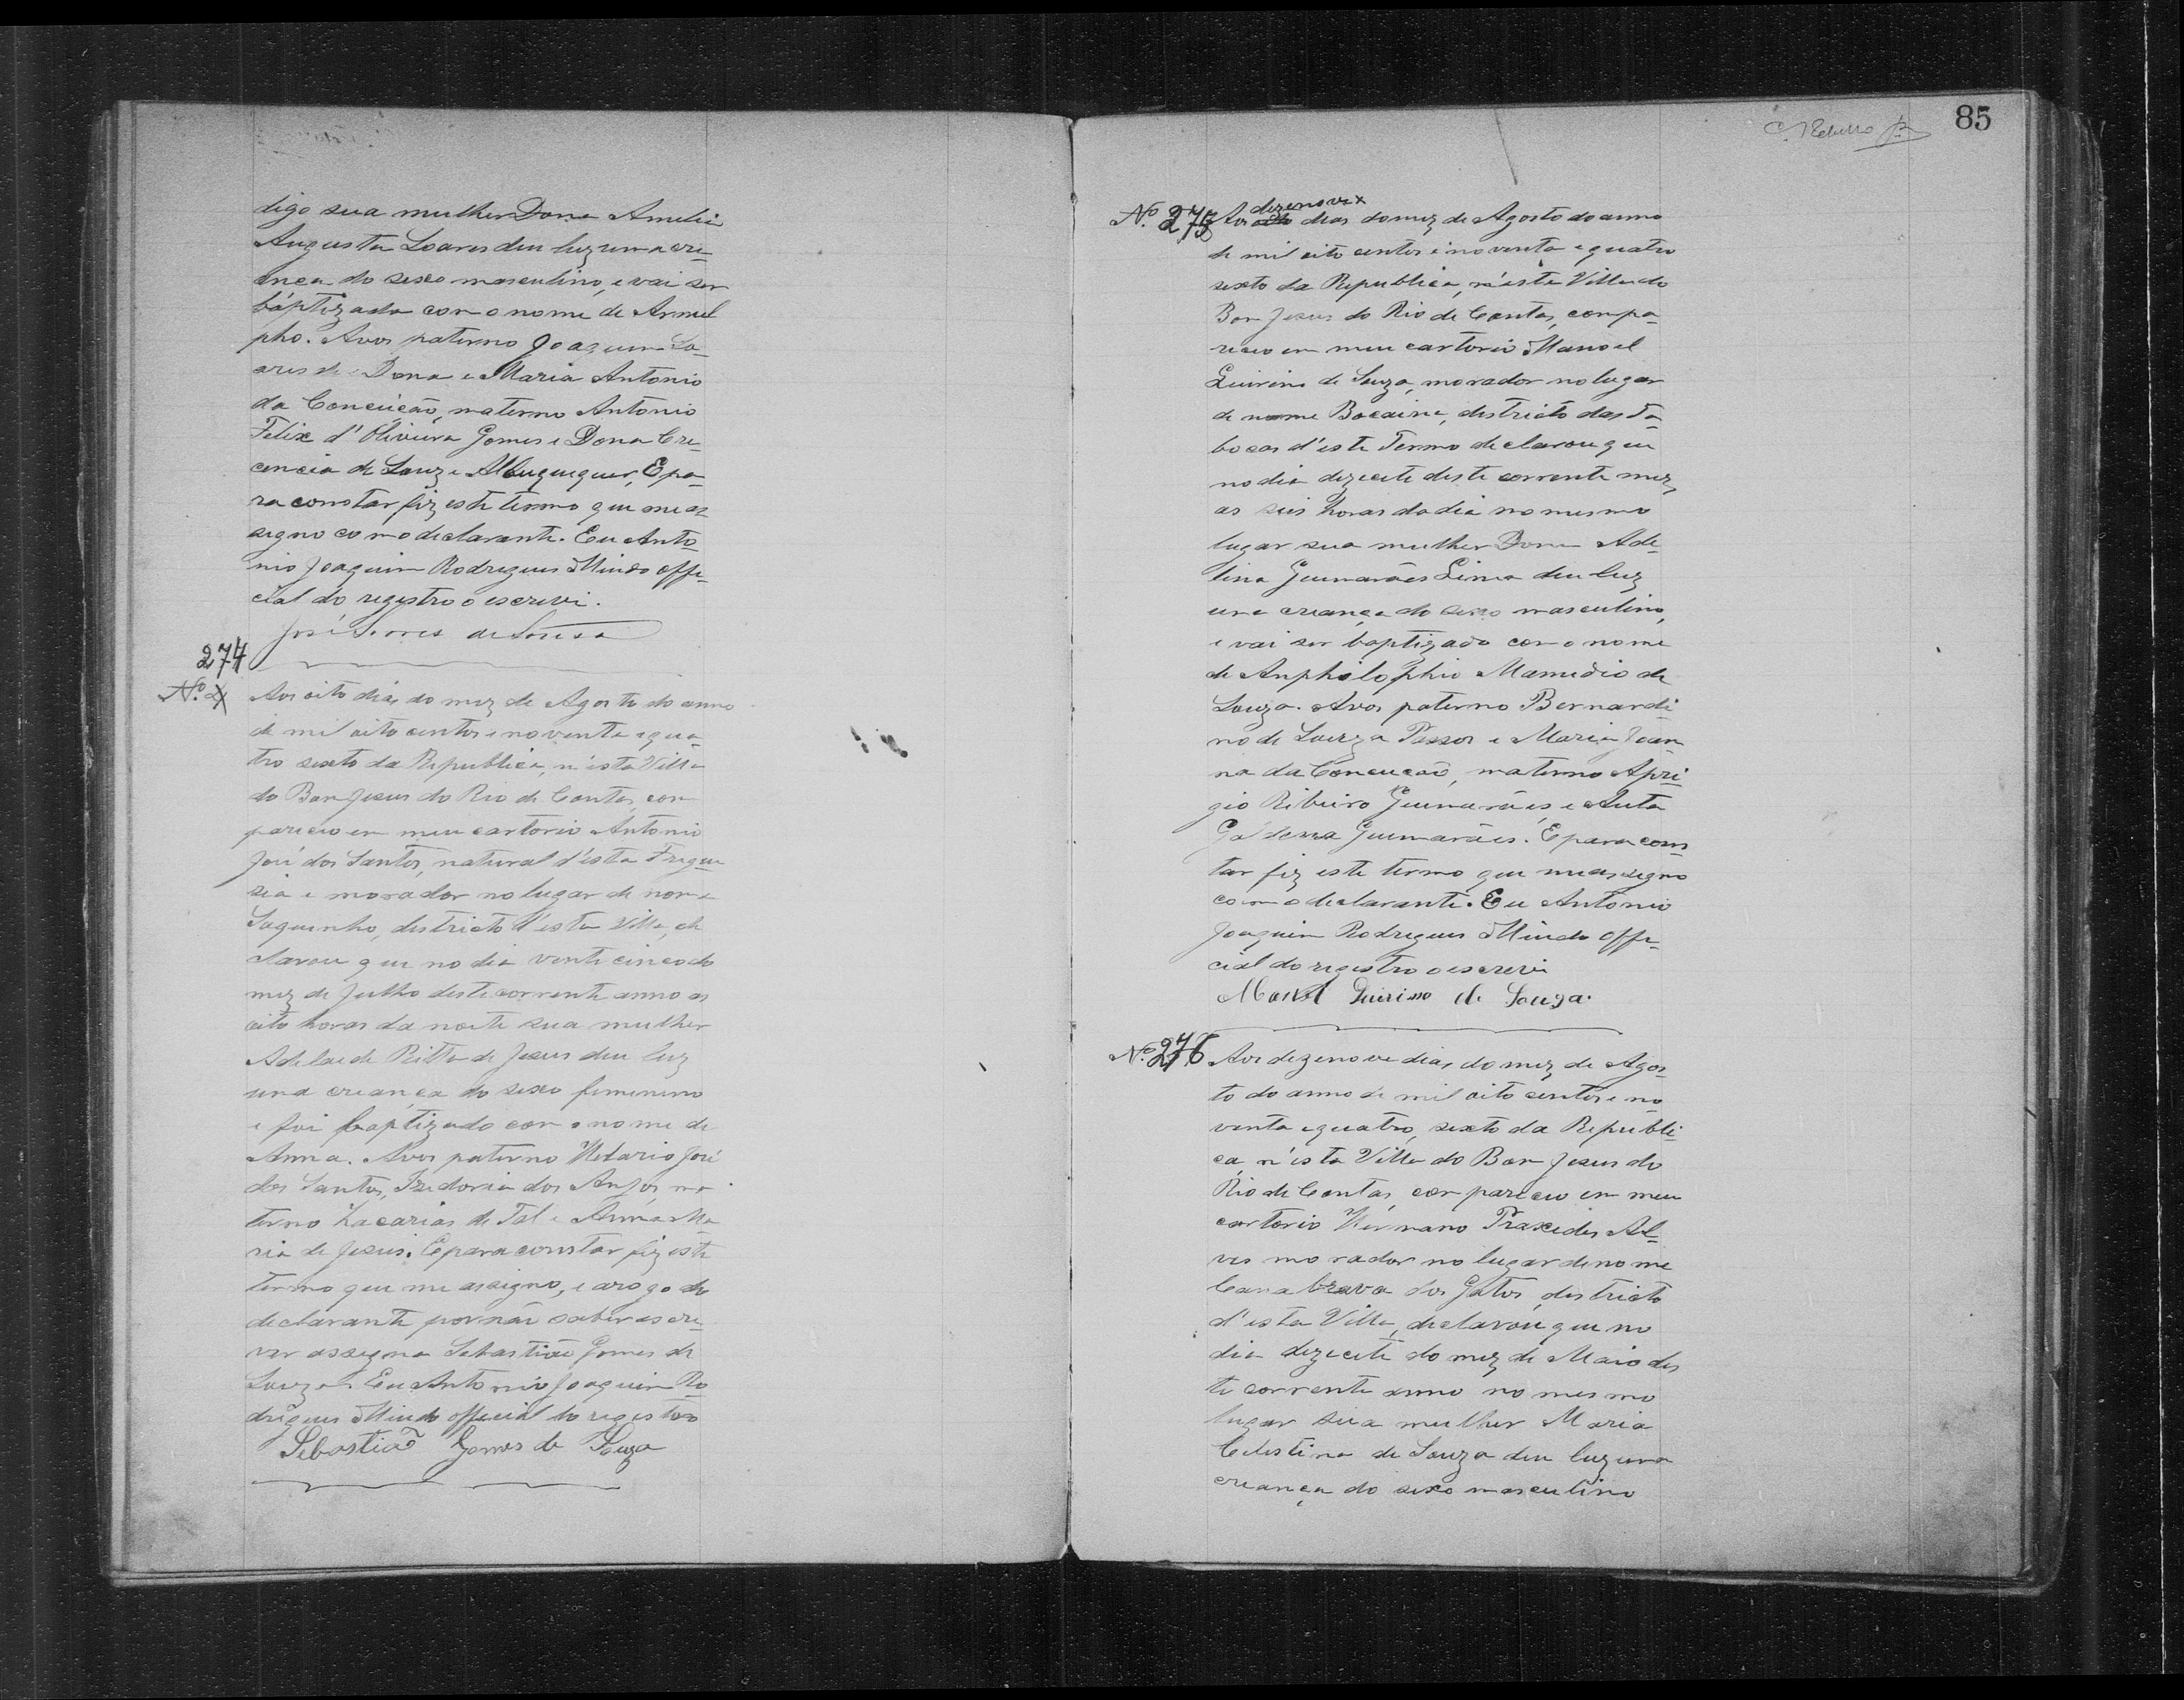 digo sua mulher Dona Amelia
Augusta Soares deu luz uma cre-
ança do sexo masculino, e vai ser
baptizado com o nome de Arnul
pho. Avos paterno Joaquim So-
ares de Dona e Maria Antonio
da Conceicão, materno Antonio
Felix d'Oliveira Gomes e Dona Cre-
cencia de Souz e Albuquequer, E pa-
ra constar fiz este termo que me as-
signo com o declarante. Eu Anto-
nio Joaquim Rodrigues Mindo offi-
cial do registro o escrevi.
José Soares de Souza
274
Nº
Aos oito dias do mez de Agosto do anno
de mil oito centos e noventa e qua-
tro sexto da Republica, n'esta Villa
do Bom Jesus do Rio de Contas, com
pareceo em meu cartorio Antonio
José dos Santos, natural d'esta Fregue
sia e morador no lugar de nome
Saquinho, districto d'esta Villa, de
clarou que no dia vente cinco do
mez de Julho deste corrente anno as
oito horas da noite sua mulher
Adelaide Ritta de Jesus deu luz
uma creança do sexo femenino
e foi baptizado com o nome de
Anna. Avos paterno José
dos Santos, Izedoria dos Anjos, ma
terno Zacarias de Tal e Anna Ma
ria de Jesus. E para constar fiz este
termo que me assigno, e arogo do
declarante por não saber escre-
ver assigna Sebastião Gomes de
Souza. Eu Antonio Joaquim Ro
drigues Mindo official do registro
Sebastião Gomes de Souza
85
Nº 275
dezenove
Aos oito dias do mez de Agosto do anno
de mil oito centos e noventa e quatro
sexto da Republica, n'esta Villa do
Bom Jesus do Rio de Contas, compa-
receo em meu cartorio Manoel
Quirino de Souza, morador no lugar
de nome Bocaina, districto das Ta-
bocas d'este Termo declarou que
no dia dezecete deste corrente mez,
as seis horas do dia no mesmo
lugar sua mulher Dona Ade-
lina Guimarães Lima deu luz
uma creança do sexo masculino,
e vai ser baptizado com o nome
de Anphilophio Mamedio de
Souza. Avos paterno Bernardi-
no de Souza Passos e Maria Joan-
na da Conceicão, materno Apri-
gio Ribeiro Guimarães e Auta
Guimarães. E para cons-
tar fiz este termo que me assigno
com o declarante. Eu Antonio
Joaquim Rodrigues Mindo offi-
cial do registro o escrevi
Manoel Quirino de Souza.
Nº 276
Aos dezenove dias do mez de Agos-
to do anno de mil oito centos e no-
venta e quatro, sexto da Republi-
ca, n'esta Villa do Bom Jesus do
Rio de Contas, compareceo em meu
cartorio Praxedes Al-
ves morador no lugar de nome
Canabrava dos Gatos, districto
d'esta Villa, declarou que no
dia dezecete do mez de Maio des
te corrente anno no mesmo
lugar sua mulher Maria
Celestina de Souza deu luz uma
creança do sexo masculino